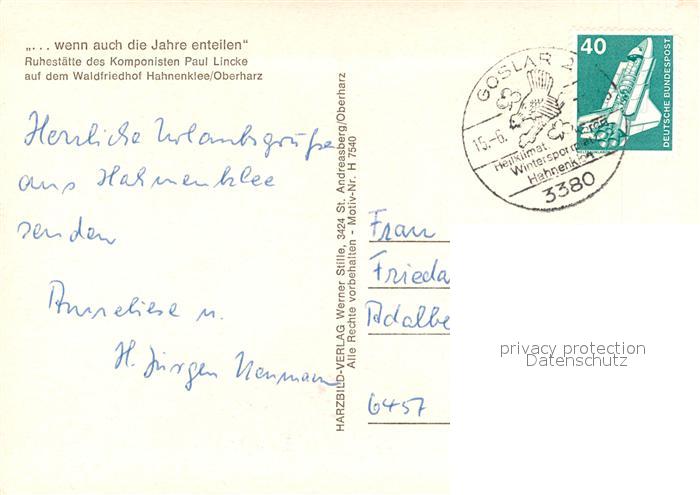 „... wenn auch die Jahre enteilen“
Ruhestätte des Komponisten Paul Lincke
auf dem Waldfriedhof Hahnenklee/Oberharz
Herzliche Urlaubsgrüße
aus Hahnenklee
senden
Anneliese u.
H. Jürgen Neumann
HARZBILD-VERLAG Werner Stille, 3424 St. Andreasberg/Oberharz
Alle Rechte vorbehalten - Motiv-Nr. H 7540
GOSLAR 2
15.-6.
Heilklimat.
Wintersport
Hahnenklee
3380
40
DEUTSCHE BUNDESPOST
Frau
Frieda
Adalbe
6457
privacy protection
Datenschutz